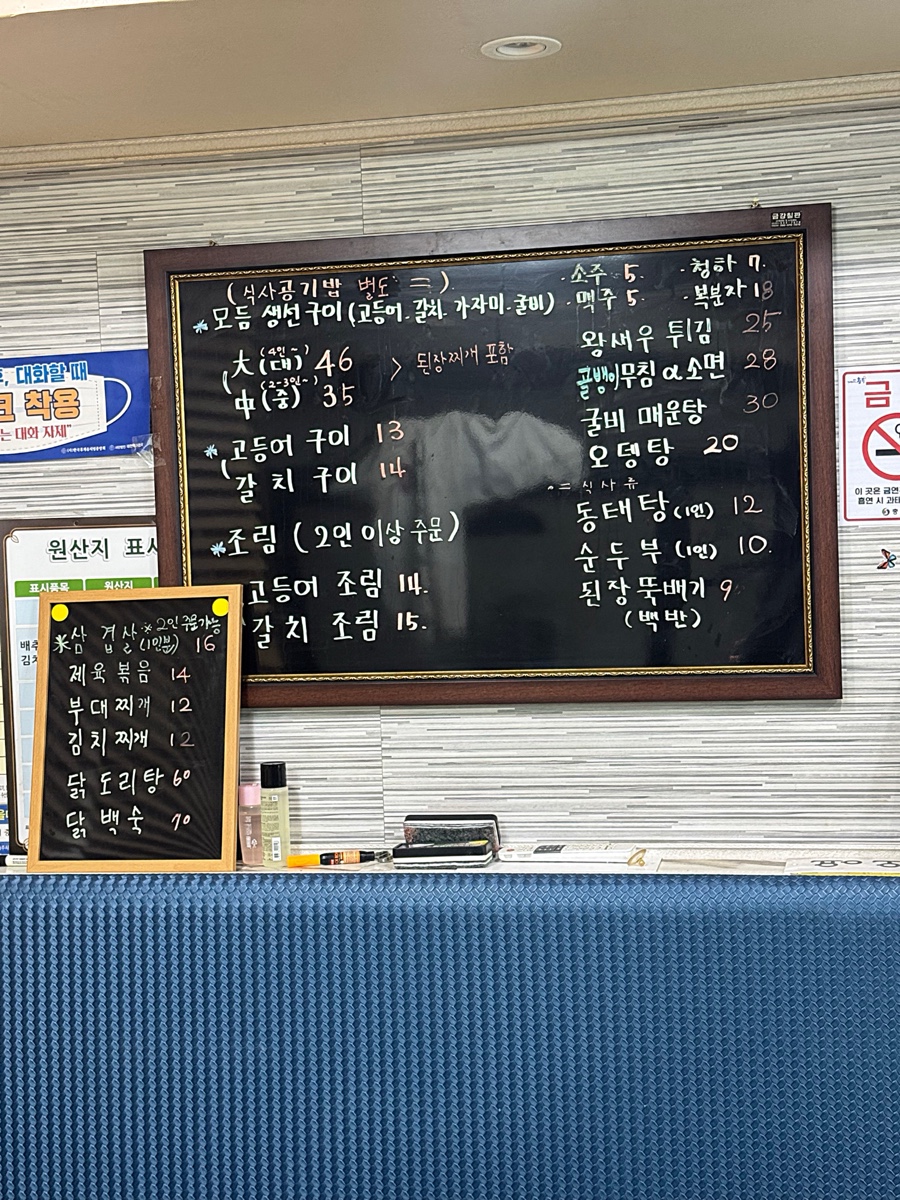 금강칠판
(식사공기밥 별도 =)
* 모듬 생선구이 (고등어. 갈치. 가자미. 굴비)
大 (4인~) (대) 46
中 (2-3인~) (중) 35
> 된장찌개 포함
* 고등어 구이 13
갈치 구이 14
* 조림 (2인 이상 주문)
고등어 조림 14.
갈치 조림 15.
· 소주 5. · 청하 7.
· 맥주 5 · 복분자 18
왕새우 튀김 25
골뱅이무침 α소면 28
굴비 매운탕 30
오뎅탕 20
= 식사류
동태탕 (1인) 12
순두부 (1인) 10.
된장뚝배기 9
(백반)
* 삼겹살 (1인분) 16
* 2인 주문가능
제육볶음 14
부대찌개 12
김치찌개 12
닭도리탕 60
닭백숙 70
대화할 때
착용
는 대화 자제"
원산지 표시
표시품목 원산지
배추
김치
금
이 곳은 금연
흡연 시 과태